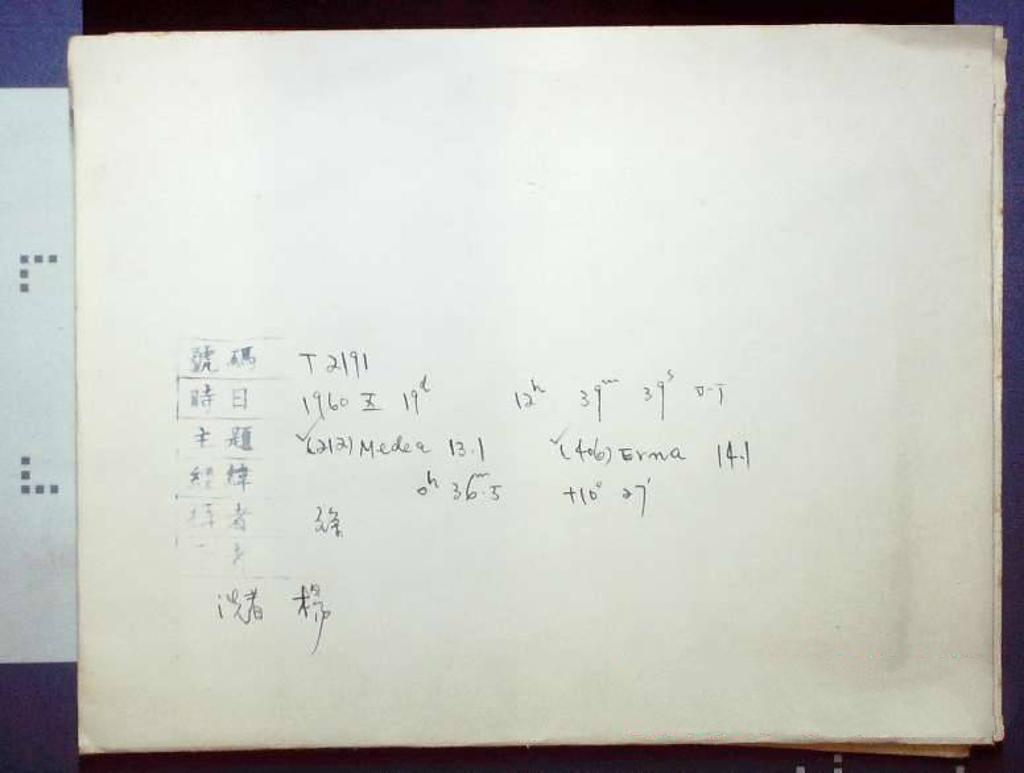 號碼 T 2191
時日 1960 五 19ᵈ 12ʰ 39ᵐ 39ˢ U.T
主題 ✓(212) Medea 13.1 ✓(406) Erna 14.1
經緯 0ʰ 36ᵐ.5 +10° 27′
者
洗者 楊